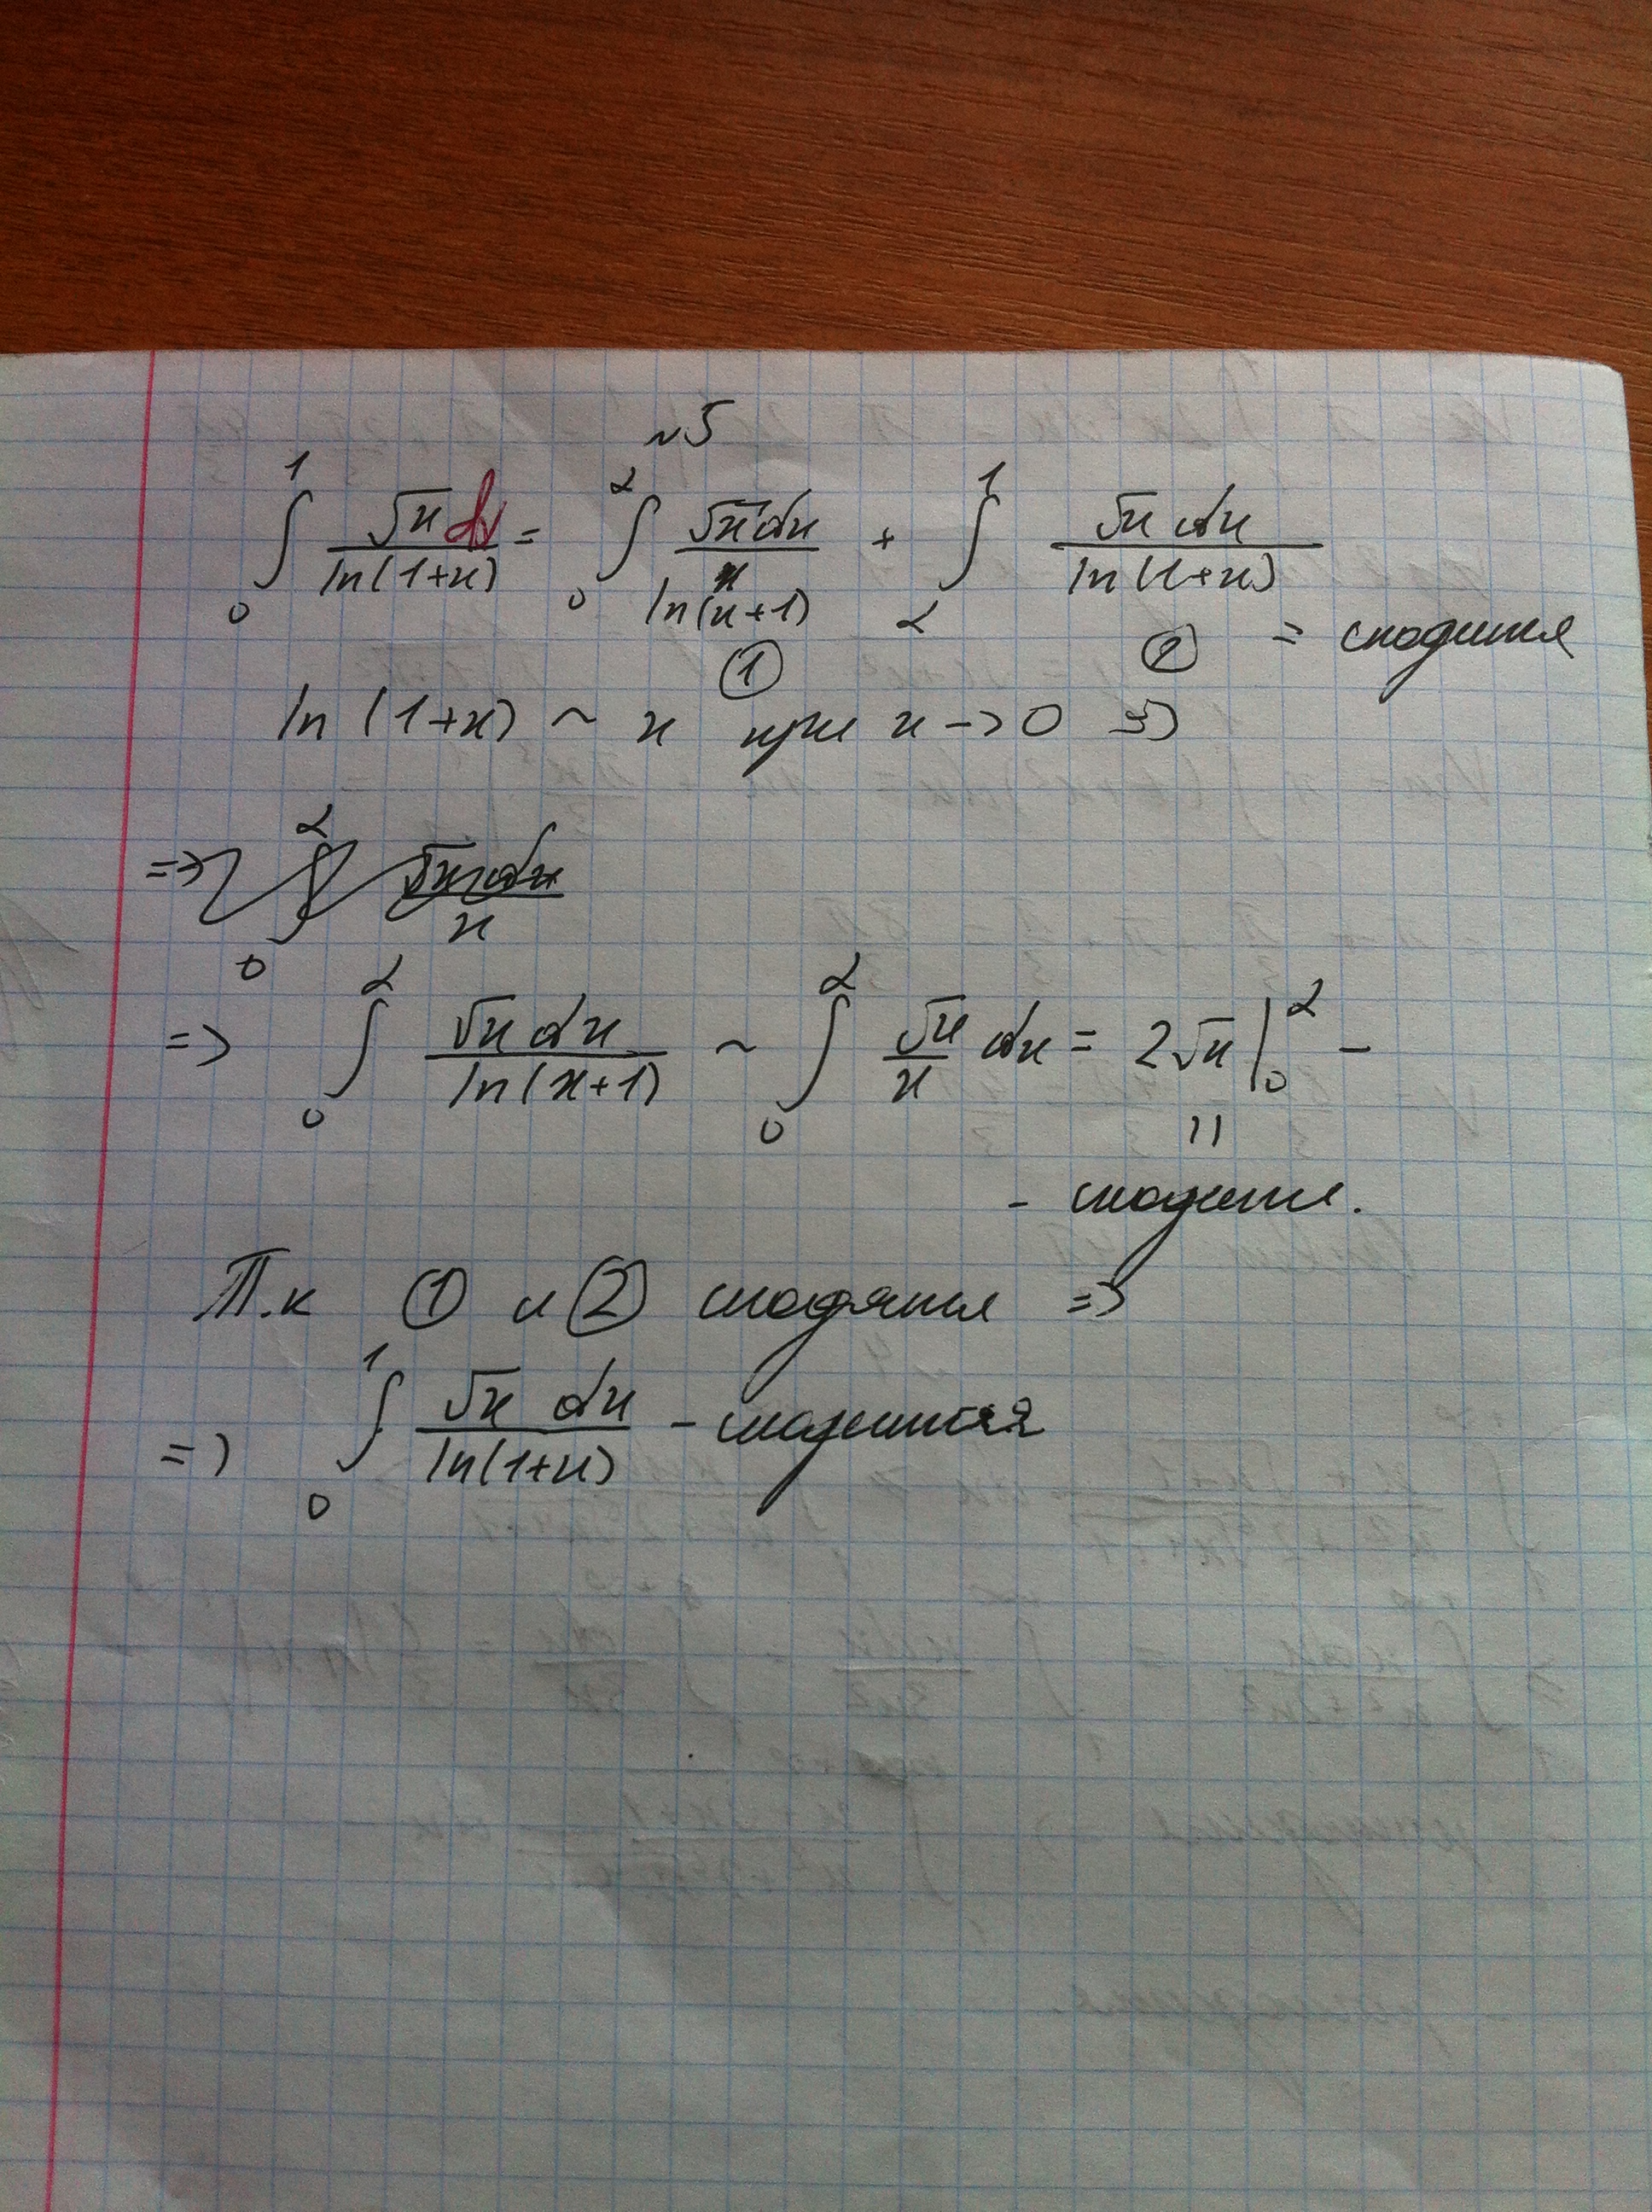 №5
∫₀¹ √x dx / ln(1+x) = ∫₀^α √x dx / ln(x+1) + ∫_α¹ √x dx / ln(1+x)
① ② = сходится
ln(1+x) ~ x при x → 0 =>
=> ∫₀^α √x dx / x
=> ∫₀^α √x dx / ln(x+1) ~ ∫₀^α √x / x dx = 2√x |₀^α -
- сходится.
Т.к ① и ② сходятся =>
=> ∫₀¹ √x dx / ln(1+x) - сходится